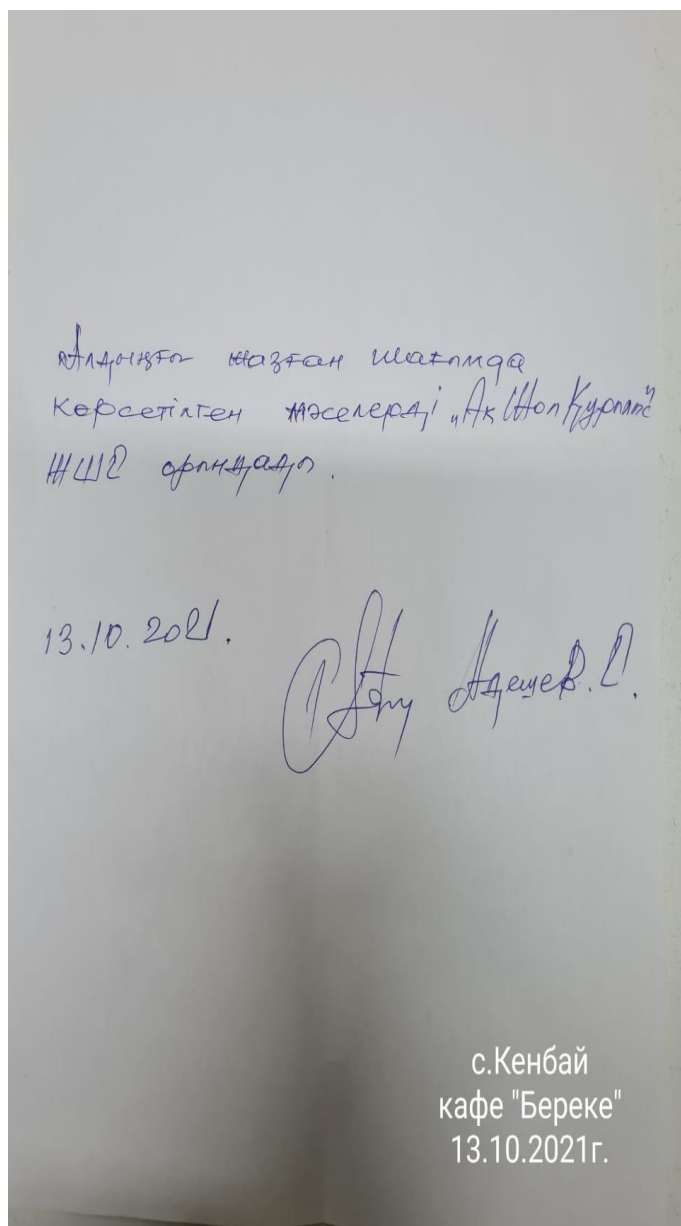 Алдыңғы жазған шағымда
көрсетілген мәселерді „Ақ Жол Құрылыс"
ЖШС орындады.
13.10.2021.
Адешев. С.
с.Кенбай
кафе "Береке"
13.10.2021г.